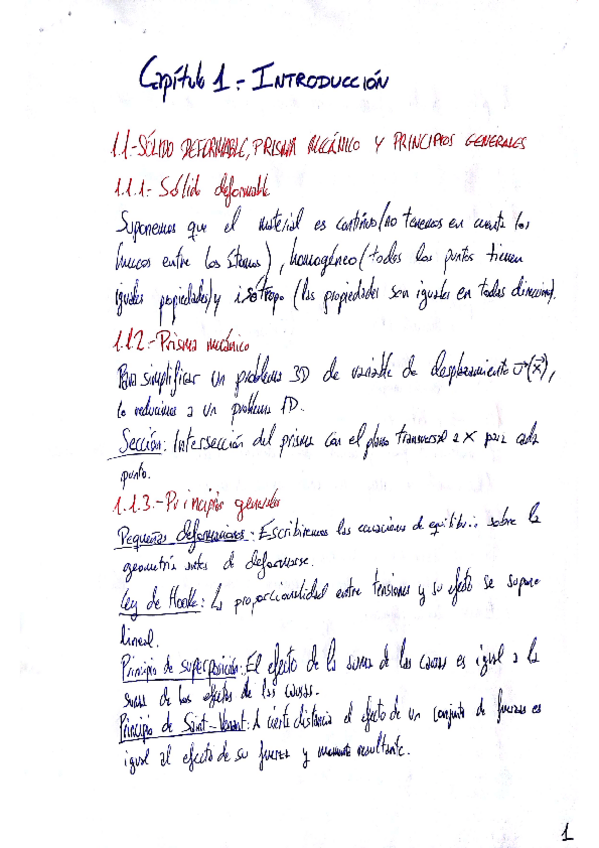 Capítulo 1.- INTRODUCCIÓN
1.1-SÓLIDO DEFORMABLE, PRISMA MECÁNICO Y PRINCIPIOS GENERALES
1.1.1- Sólido deformable
Suponemos que el material es continuo (no tenemos en cuenta los
huecos entre los átomos), homogéneo (todos los puntos tienen
iguales propiedades) y isótropo (las propiedades son iguales en todas direcciones).
1.1.2.-Prisma mecánico
Para simplificar un problema 3D de variable de desplazamiento u⃗(x⃗),
lo reducimos a un problema 1D.
Sección: Intersección del prisma con el plano transversal a x para cada
punto.
1.1.3.-Principios generales
Pequeñas deformaciones: Escribiremos las ecuaciones de equilibrio sobre la
geometría antes de deformarse.
Ley de Hooke: La proporcionalidad entre tensiones y su efecto se supone
lineal.
Principio de superposición: El efecto de la suma de las causas es igual a la
suma de los efectos de las causas.
Principio de Saint-Venant: A cierta distancia el efecto de un conjunto de fuerzas es
igual al efecto de su fuerza y momento resultante.
1